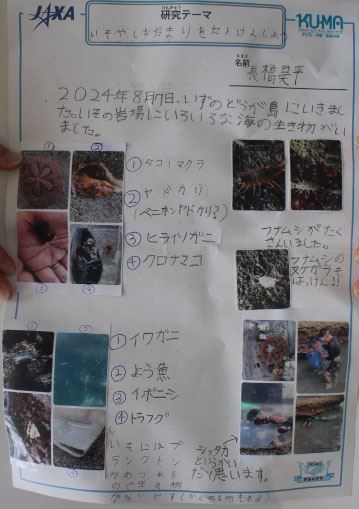 JAXA
けんきゅう
研究テーマ
KUMA
いそやしおだまりをたんけんしよう
なまえ
名前
2024年8月7日、いずのどうが島にいきまし
た。いその岩場にいろいろな海の生き物がい
ました。
① ②
①タコノマクラ
②ヤドカリ
(ベニホンヤドカリ?)
③ヒライソガニ
④クロナマコ
フナムシがたく
さんいました。
フナムシの
ヌケガラも
はっけん!!
①イワガニ
②よう魚
③イボニシ
④トラフグ
いそにはプ
ランクトン
シッタカ
だと思います。